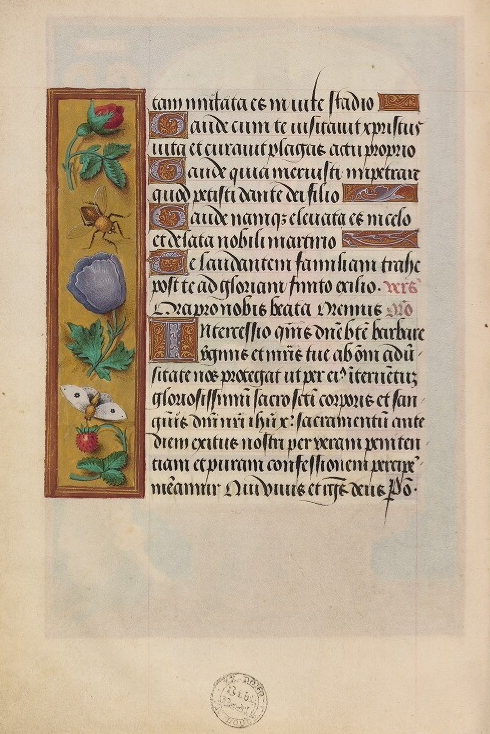 tam imitata es in virtu stadio
Gaude cum te visitavit xpristus
vita et curavit plagas actu proprio
Gaude quia meruisti impetrare
quod petisti dante dei filio
Gaude namqz elevata es in celo
et delata nobili martirio
Te laudantem familiam trahe
post te ad gloriam finito exilio. vers
Ora pro nobis beata Oremus oro
Intercessio qms dne bte barbare
virginis et mris tue ab oni adu
sitate nos protegat ut per eiꝰ interuentuz
gloriosissimi sacroscti corporis et san
guis dni nri ihu x: sacramentum ante
diem exitus nostri per veram peniten
tiam et puram confessionem percipe
mereamur Qui vivis et rgs deus p o.